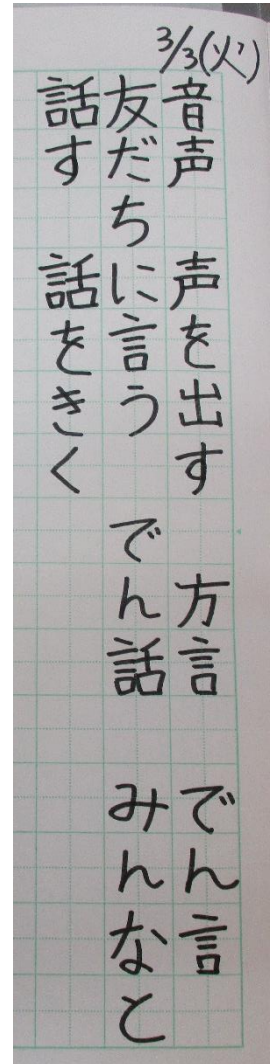 3/3(火)
音声　声を出す　方言　でん言
友だちに言う　でん話　みんなと
話す　話をきく